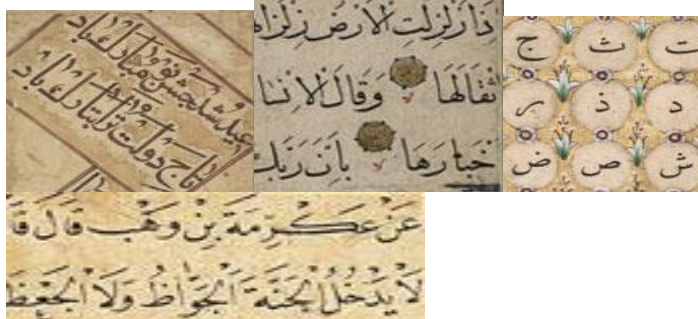 عید شد جشن نو مبارک باد
تاج دولت مبارک باد
ذَا زُلْزِلَتِ الْاَرْضُ زِلْزَا
ثْقَالَهَا وَقَالَ الْاِنْسَا
خْبَارَهَا بِاَنَّ رَبَّكَ
ت ث ج
د ذ ر
ش ص ض
عَنْ عِكْرِمَةَ بْنِ وَهْبٍ قَالَ قَا
لَا يَدْخُلُ الْجَنَّةَ الْجَوَّاظُ وَلَا الْجَعْظَ